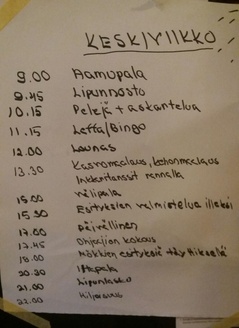 KESKIVIIKKO
9.00 Aamupala
9.45 Lipunnosto
10.15 Pelejä + askartelua
11.15 Leffa/Bingo
12.00 Lounas
13.30 Kasvomaalaus, kehonmaalaus
Inkkaritanssit rannalla
15.00 välipala
15.30 Esityksien valmistelua illaksi
17.00 Päivällinen
17.45 Ohjaajien kokous
18.00 Mökkien esityksiä
20.30 Iltapala
21.00 Lipunlasku
22.00 Hiljaisuus